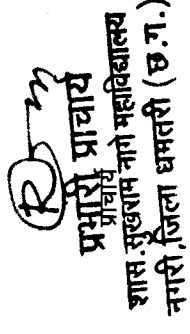 प्रभारी प्राचार्य
प्राचार्य
शास. सुखराम नागे महाविद्यालय
नगरी, जिला धमतरी (छ.ग.)